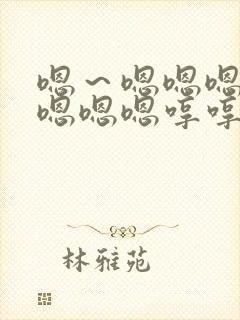 嗯～嗯嗯嗯
嗯嗯嗯哼哼
林雅苑